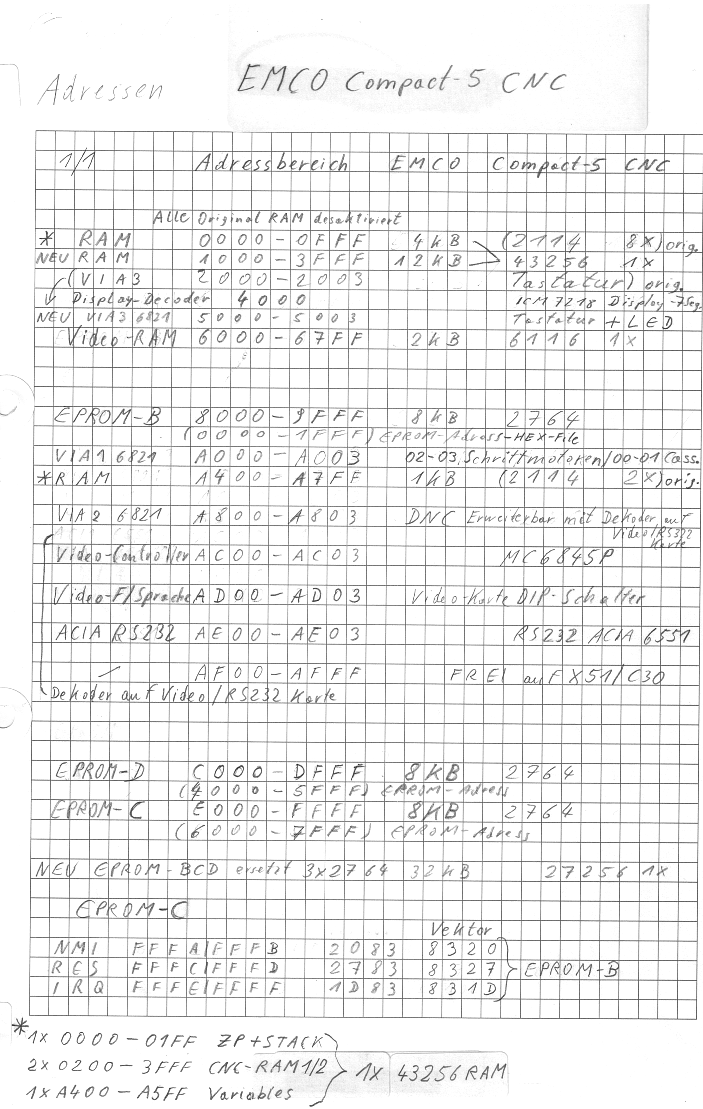 Adressen EMCO Compact-5 CNC
1/1 Adressbereich EMCO Compact-5 CNC
Alle Original RAM desaktiviert
* RAM 0000-0FFF 4kB (2114 8x) orig.
NEU RAM 1000-3FFF 12kB 43256 1x
(VIA3 2000-2003 Tastatur) orig.
Display-Decoder 4000 ICM7218 Display-7Seg
NEU VIA3 6821 5000-5003 Tastatur + LED
Video-RAM 6000-67FF 2kB 6116 1x
EPROM-B 8000-9FFF 8kB 2764
(0000-1FFF) EPROM-Adress-HEX-File
VIA1 6821 A000-A003 02-03,Schrittmotoren/00-01 Cass.
*RAM A400-A7FF 1kB (2114 2x) orig.
VIA2 6821 A800-A803 DNC Erweiterbar mit Dekoder auf
Video/RS232
Karte
Video-Controller AC00-AC03 MC6845P
Video-F/Sprache AD00-AD03 Video-Karte DIP-Schalter
ACIA RS232 AE00-AE03 RS232 ACIA 6551
AF00-AFFF FREI auf X51/C30
Dekoder auf Video/RS232 Karte
EPROM-D C000-DFFF 8KB 2764
(4000-5FFF) EPROM-Adress
EPROM-C E000-FFFF 8KB 2764
(6000-7FFF) EPROM-Adress
NEU EPROM-BCD ersetzt 3x2764 32kB 27256 1x
EPROM-C
Vektor
NMI FFFA/FFFB 2083 8320
RES FFFC/FFFD 2783 8327 EPROM-B
IRQ FFFE/FFFF 1D83 831D
* 1x 0000-01FF ZP+STACK
2x 0200-3FFF CNC-RAM1/2 1x 43256 RAM
1x A400-A5FF Variables